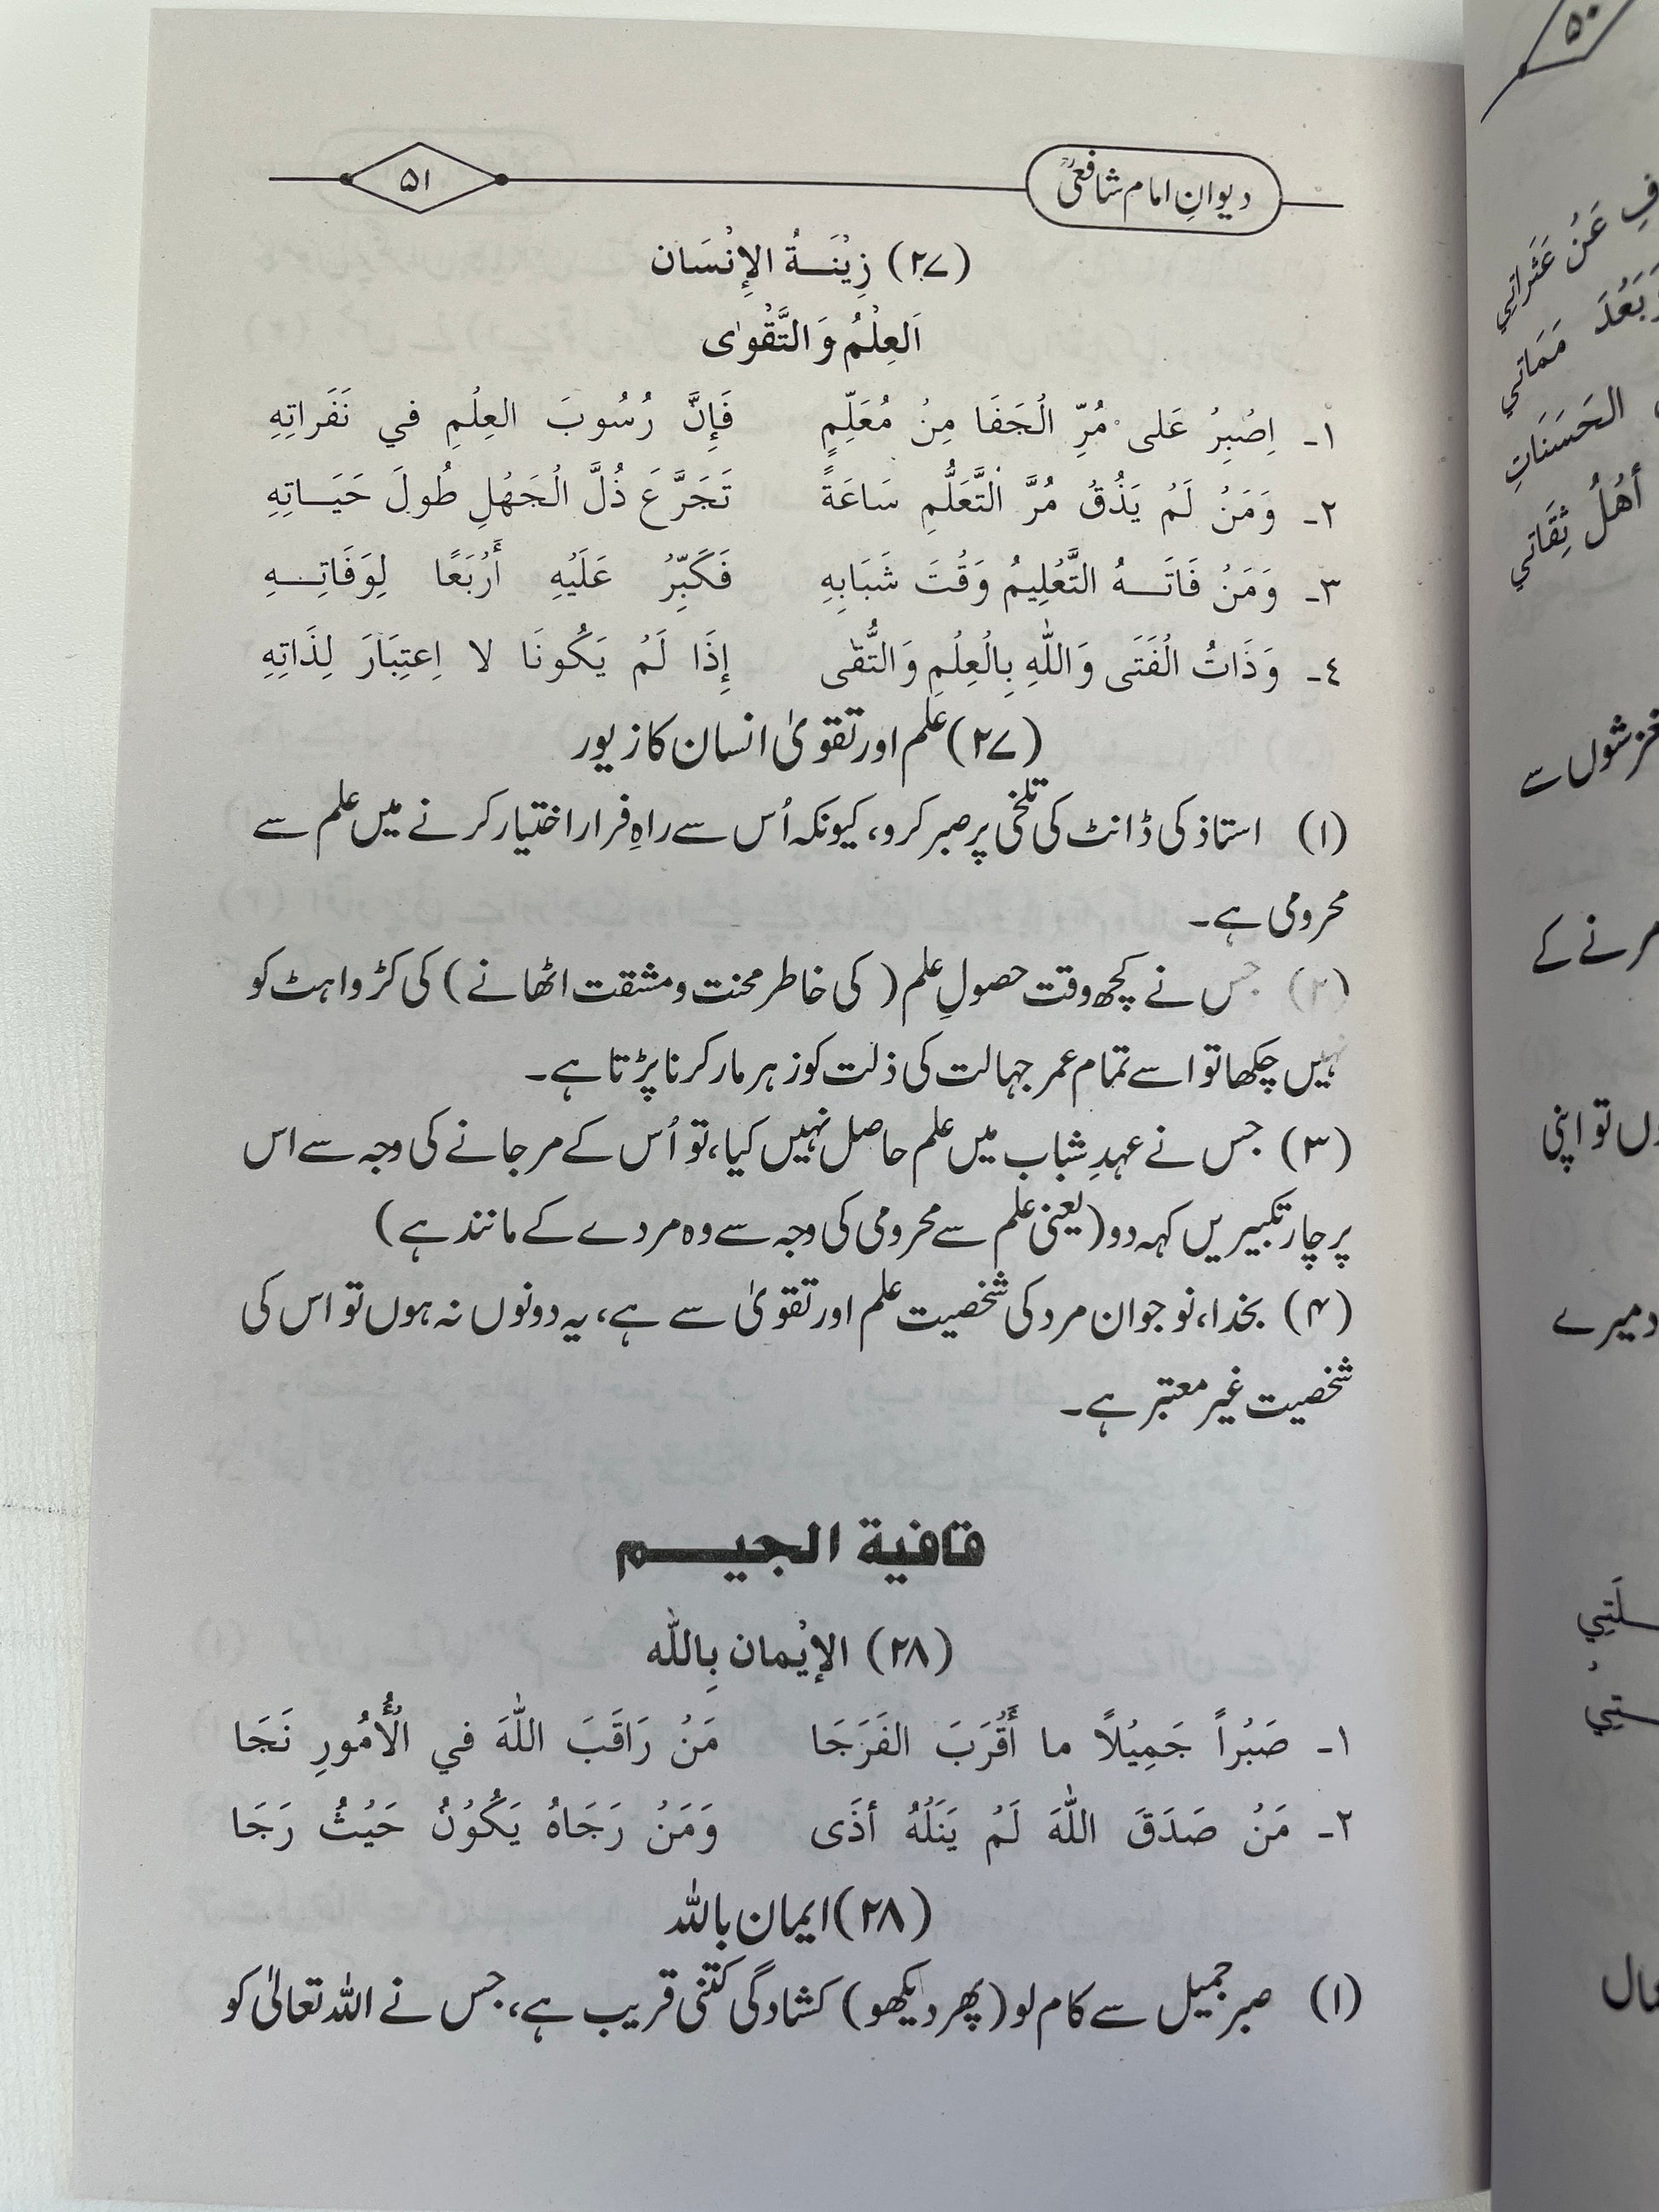 دیوانِ امام شافعیؒ ۵۱
(۲۷) زِيْنَـةُ الإِنْسَان
اَلعِلْمُ وَالتَّقْوٰى
١ـ اِصْبِرُ عَلى مُرِّ الْجَفَا مِنْ مُعَلِّمٍ فَإِنَّ رُسُوبَ العِلْمِ في نَفَراتِهِ
٢ـ وَمَنْ لَمْ يَذُقْ مُرَّ التَّعَلُّمِ سَاعَةً تَجَرَّعَ ذُلَّ الْجَهْلِ طُولَ حَيَـاتِهِ
٣ـ وَمَنْ فَاتَـهُ التَّعْلِيمُ وَقْتَ شَبَابِهِ فَكَبِّرْ عَلَيْهِ أَرْبَعًا لِوَفَاتِـهِ
٤ـ وَذَاتُ الْفَتَى وَاللّٰهِ بِالْعِلْمِ وَالتُّقٰى إِذَا لَمْ يَكُونَا لا اِعتِبَارَ لِذَاتِهِ
(۲۷) علم اور تقویٰ انسان کا زیور
(۱) استاذ کی ڈانٹ کی تلخی پر صبر کرو، کیونکہ اُس سے راہِ فرار اختیار کرنے میں علم سے
محرومی ہے۔
(۲) جس نے کچھ وقت حصولِ علم (کی خاطر محنت و مشقت اٹھانے) کی کڑواہٹ کو
نہیں چکھا تو اسے تمام عمر جہالت کی ذلت کو زہر مار کرنا پڑتا ہے۔
(۳) جس نے عہدِ شباب میں علم حاصل نہیں کیا، تو اُس کے مر جانے کی وجہ سے اس
پر چار تکبیریں کہہ دو (یعنی علم سے محرومی کی وجہ سے وہ مردے کے مانند ہے)
(۴) بخدا، نوجوان مرد کی شخصیت علم اور تقویٰ سے ہے، یہ دونوں نہ ہوں تو اس کی
شخصیت غیر معتبر ہے۔
قافية الجيـم
(۲۸) الإيْمان بِاللّٰه
١ـ صَبْراً جَمِيْلاً ما أَقْرَبَ الفَرَجَا مَنْ رَاقَبَ اللّٰهَ في الْأُمُورِ نَجَا
٢ـ مَنْ صَدَقَ اللّٰهَ لَمْ يَنَلْهُ أذَى وَمَنْ رَجَاهُ يَكُوْنُ حَيْثُ رَجَا
(۲۸) ایمان باللہ
(۱) صبر جمیل سے کام لو (پھر دیکھو) کشادگی کتنی قریب ہے، جس نے اللہ تعالیٰ کو
۵۰
فِ عَنْ عَثَراتِي
وَبَعْدَ مَمَاتي
الحَسَنَاتِ
أهْلُ ثِقَاتي
سے
مرنے کے
تو اپنی
میرے